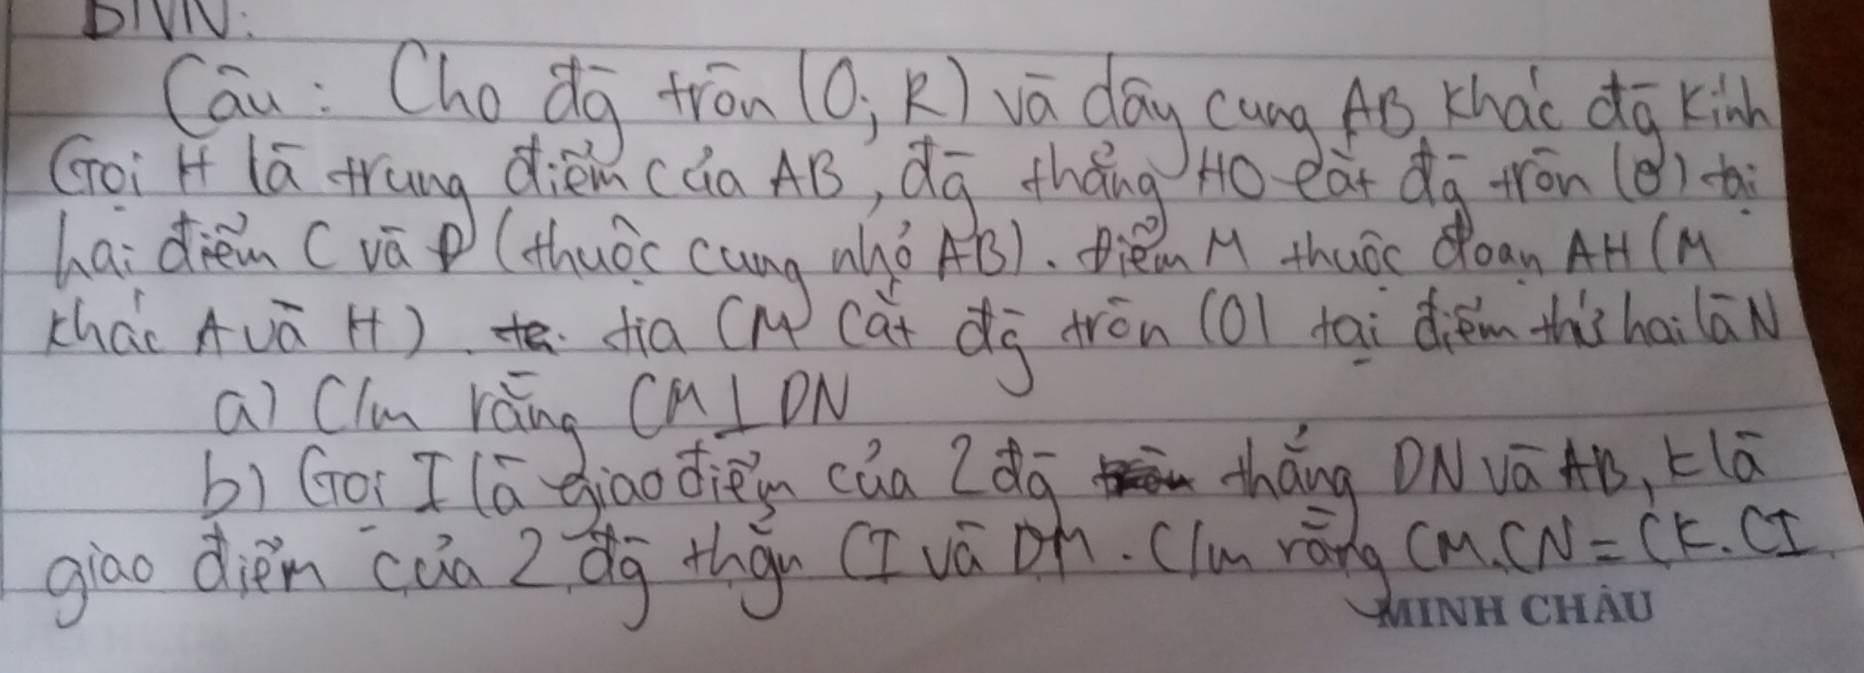 BTVN:
Câu: Cho đg tròn (O; R) và dây cung AB khác đg kính
Gọi H là trung điểm của AB, đg thẳng HO cắt đg tròn (O) tại
hai điểm C và D (thuộc cung nhỏ AB). Điểm M thuộc đoạn AH (M
khác A và H). tia CM cắt đg tròn (O) tại điểm thứ hai là N
a) C/m rằng CM ⊥ DN
b) Gọi I là giao điểm của 2 đg thẳng DN và AB, K là
giao điểm của 2 đg thẳn CI và DM. C/m rằng CM.CN = CK.CI
MINH CHÂU